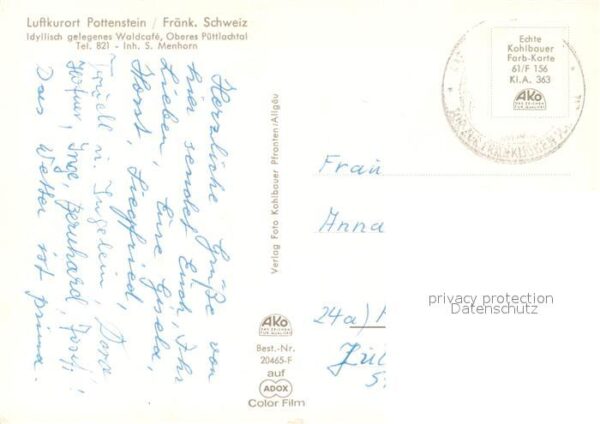 Luftkurort Pottenstein / Fränk. Schweiz
Idyllisch gelegenes Waldcafé, Oberes Püttlachtal
Tel. 821 - Inh. S. Menhorn
Herzliche Grüße von
hier sendet Euch, Ihr
Lieben, Eure Gisela,
Horst, Siegfried,
in Dora
Inge, Bernhard, Josef,
Das Wetter ist prima.
Verlag Foto Kohlbauer Pfronten/Allgäu
AKo
DAS ZEICHEN FÜR QUALITÄT
Best.-Nr.
20465-F
auf
ADOX
Color Film
Echte
Kohlbauer
Farb-Karte
61/F 156
Kl.A. 363
AKo
DAS ZEICHEN FÜR QUALITÄT
Frau
Anna
24a)
privacy protection
Datenschutz